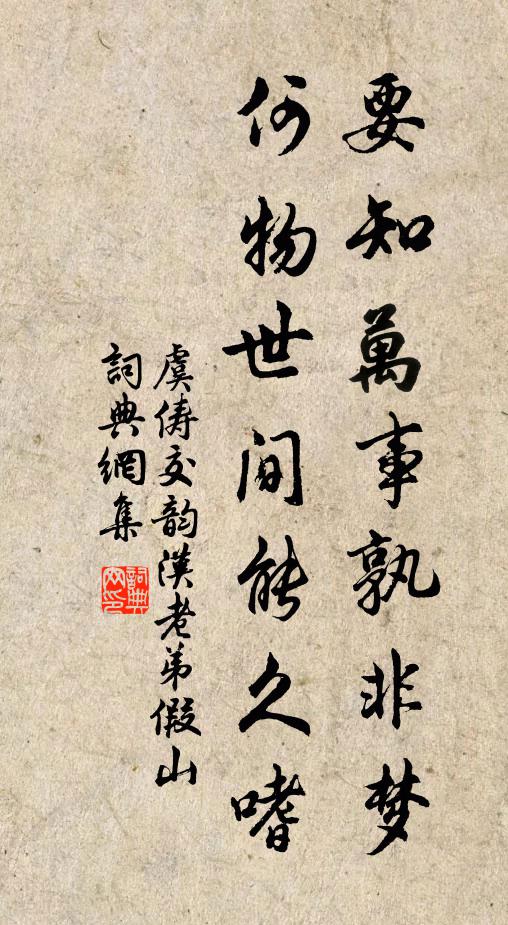 要知萬事孰非梦
何物世间能久嗜
虞俦次韵漢老弟假山
詞典網集
詞典网印